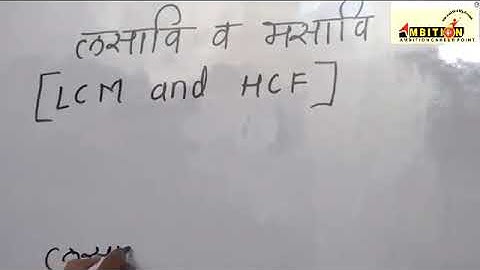 लसावि व मसावि
[LCM and HCF]
AMBITION
AMBITION CAREER POINT